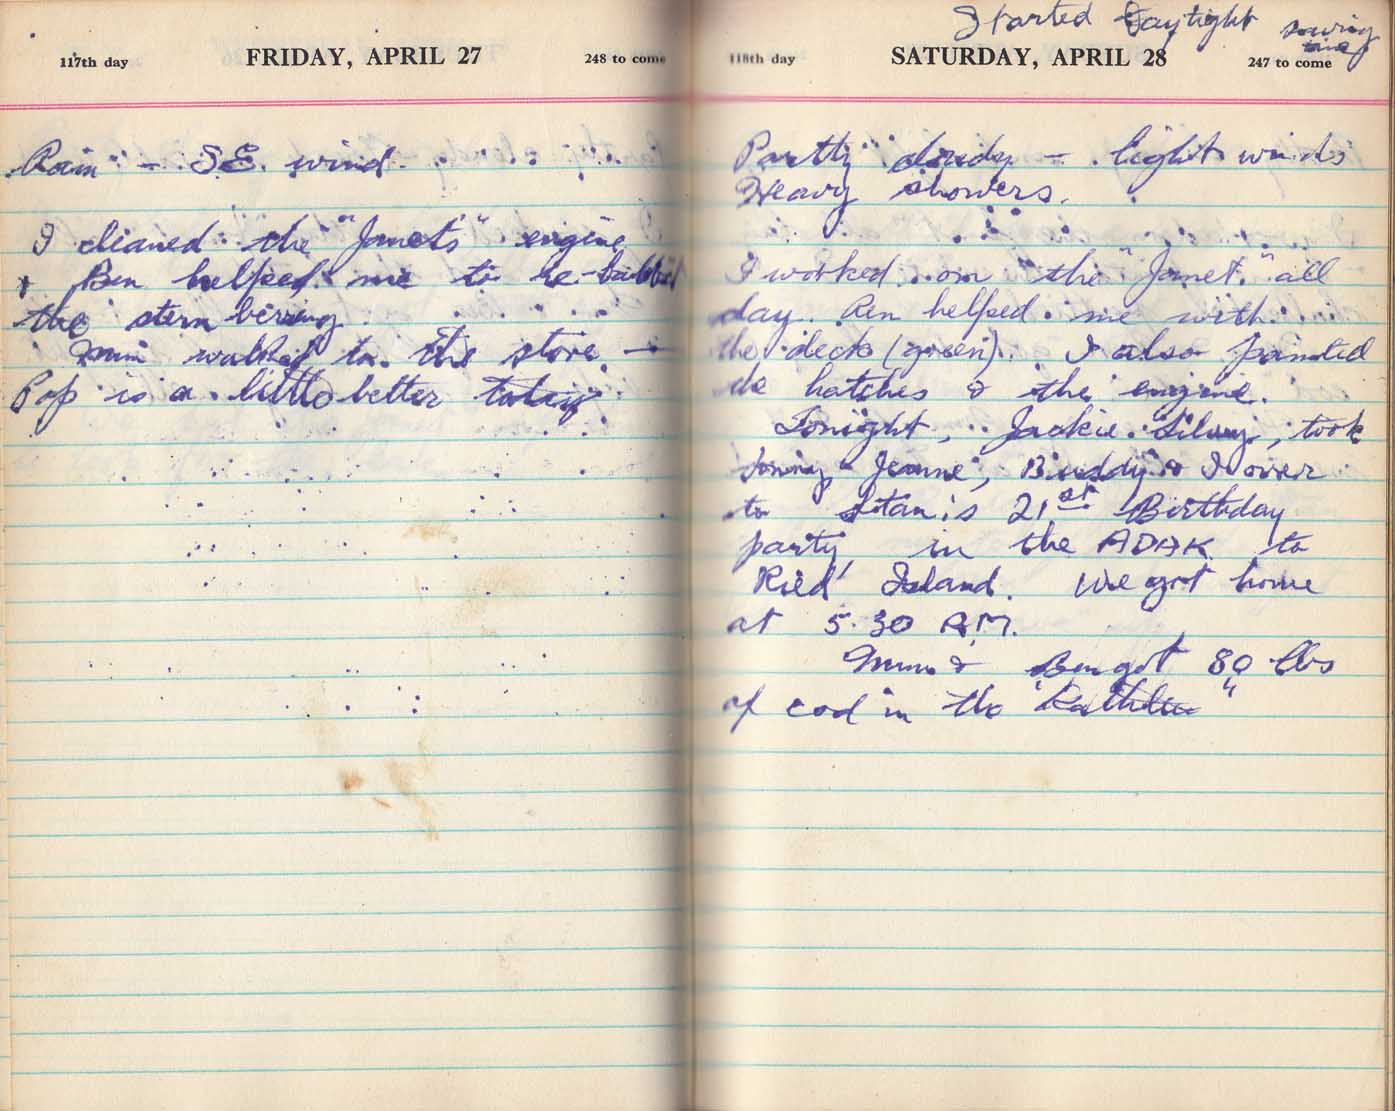 117th day FRIDAY, APRIL 27 248 to come
Rain - S.E. wind.
I cleaned the "Janet's" engine
& Ben helped me to re-babbit
the stern bering.
Mum walked to the store -
Pop is a little better today
Started Daylight saving
time
118th day SATURDAY, APRIL 28 247 to come
Partly cloudy - light winds
Heavy showers.
I worked on "the "Janet." all
day. Ben helped me with
the deck (green). I also painted
the hatches & the engine.
Tonight, Jackie took
Jeanne, Buddy & I over
to Stan's 21st Birthday
party, in the ADAK to
Ried Island. We got home
at 5.30 A.M.
Mum & Ben got 80 lbs
of cod in the "Kathleen"